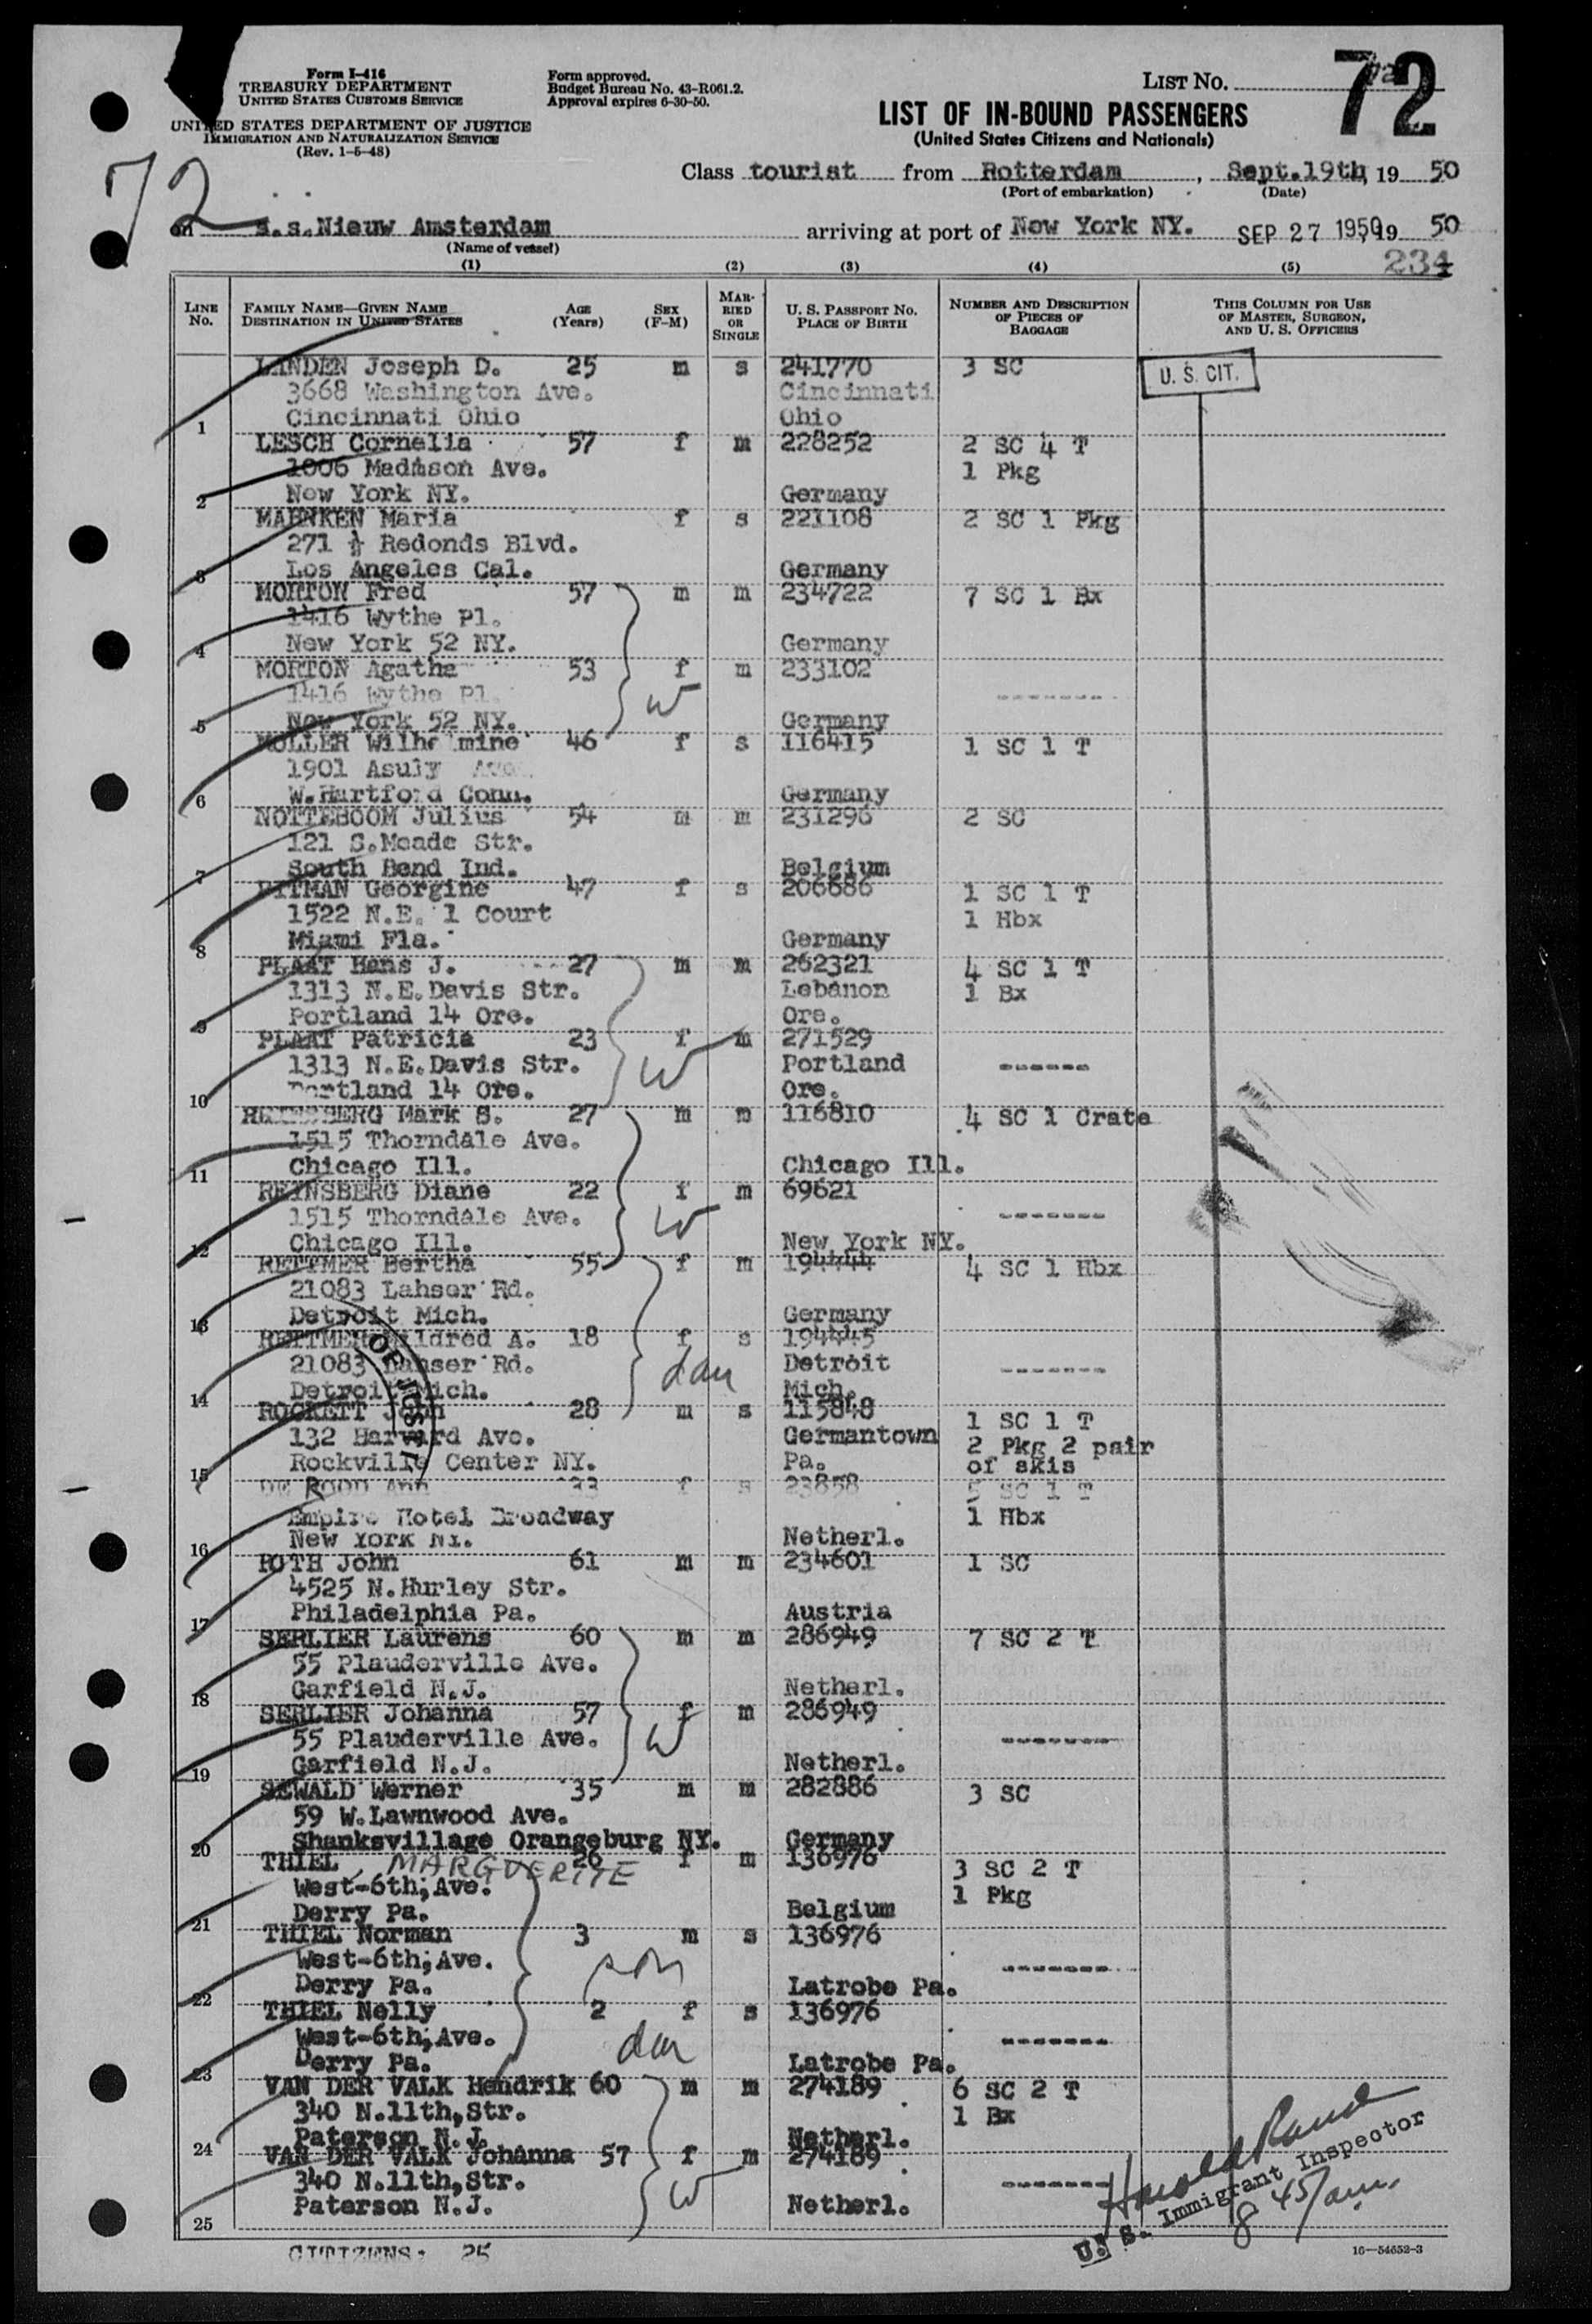 Form I-416
TREASURY DEPARTMENT
UNITED STATES CUSTOMS SERVICE
UNITED STATES DEPARTMENT OF JUSTICE
IMMIGRATION AND NATURALIZATION SERVICE
(Rev. 1-5-48)
Form approved.
Budget Bureau No. 43-R061.2.
Approval expires 6-30-50.
LIST NO. 72
LIST OF IN-BOUND PASSENGERS
(United States Citizens and Nationals)
72
Class tourist from Rotterdam, Sept.19th, 19 50
(Port of embarkation) (Date)
on s.s.Nieuw Amsterdam arriving at port of New York NY. SEP 27 1950, 19 50
(Name of vessel)
(1) (2) (3) (4) (5) 234
LINE No. FAMILY NAME—GIVEN NAME DESTINATION IN UNITED STATES AGE (Years) SEX (F-M) MARRIED OR SINGLE U. S. PASSPORT NO. PLACE OF BIRTH NUMBER AND DESCRIPTION OF PIECES OF BAGGAGE THIS COLUMN FOR USE OF MASTER, SURGEON, AND U. S. OFFICERS
LANDEN Joseph D. 25 m s 241770 3 SC U. S. CIT.
3668 Washington Ave. Cincinnati
1 Cincinnati Ohio Ohio
LESCH Cornelia 57 f m 228252 2 SC 4 T
1006 Madison Ave. 1 Pkg
2 New York NY. Germany
MAHNKEN Maria f s 221108 2 SC 1 Pkg
271 ½ Redonds Blvd.
3 Los Angeles Cal. Germany
MORTON Fred 57 m m 234722 7 SC 1 Bx
1416 Wythe Pl.
4 New York 52 NY. Germany
MORTON Agathe 53 f m 233102
1416 Wythe Pl. W -------
5 New York 52 NY. Germany
MOLLER Wilhelmine 46 f s 116415 1 SC 1 T
1901 Asuly Ave.
6 W.Hartford Conn. Germany
NOTTEBOOM Julius 54 m m 231296 2 SC
121 S.Meade Str.
7 South Bend Ind. Belgium
PITMAN Georgine 47 f s 206686 1 SC 1 T
1522 N.E. 1 Court 1 Hbx
8 Miami Fla. Germany
PLAAT Hans J. 27 m m 262321 4 SC 1 T
1313 N.E.Davis Str. Lebanon 1 Bx
9 Portland 14 Ore. Ore.
PLAAT Patricia 23 f m 271529
1313 N.E.Davis Str. W Portland ------
10 Portland 14 Ore. Ore.
REINSBERG Mark S. 27 m m 116810 4 SC 1 Crate
1515 Thorndale Ave.
11 Chicago Ill. Chicago Ill.
REINSBERG Diane 22 f m 69621
1515 Thorndale Ave. W -------
12 Chicago Ill. New York NY.
RETTMER Bertha 55 f m 194444 4 SC 1 Hbx
21083 Lahser Rd.
13 Detroit Mich. Germany
RETTMER Mildred A. 18 f s 194445
21083 Lahser Rd. dau Detroit -------
14 Detroit Mich. Mich.
ROCKETT John 28 m s 115848 1 SC 1 T
132 Harvard Ave. Germantown 2 Pkg 2 pair
15 Rockville Center NY. Pa. of skis
DE ROOD Ann 33 f s 23858 5 SC 1 T
Empire Hotel Broadway 1 Hbx
16 New York NY. Netherl.
ROTH John 61 m m 234601 1 SC
4525 N.Hurley Str.
17 Philadelphia Pa. Austria
SERLIER Laurens 60 m m 286949 7 SC 2 T
55 Plauderville Ave.
18 Garfield N.J. Netherl.
SERLIER Johanna 57 f m 286949
55 Plauderville Ave. W -------
19 Garfield N.J. Netherl.
SEWALD Werner 35 m m 282886 3 SC
59 W.Lawnwood Ave.
20 Shanksvillage Orangeburg NY. Germany
THIEL, MARGUERITE 26 f m 136976 3 SC 2 T
West-6th; Ave. 1 Pkg
21 Derry Pa. Belgium
THIEL Norman 3 m s 136976
West-6th; Ave. son -------
22 Derry Pa. Latrobe Pa.
THIEL Nelly 2 f s 136976
West-6th; Ave. dau -------
23 Derry Pa. Latrobe Pa.
VAN DER VALK Hendrik 60 m m 274189 6 SC 2 T
340 N.11th,Str. 1 Bx
24 Paterson N.J. Netherl.
VAN DER VALK Johanna 57 f m 274189
340 N.11th,Str. W -------
25 Paterson N.J. Netherl.
U. S. Immigrant Inspector
8 45/am.
CITIZENS: 25
16—54652-3